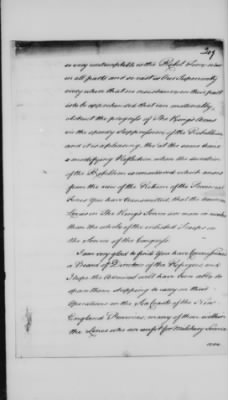 209
so very contemptible is the Rebel Force now
in all parts and so vast is Our Superiority
every where that no resistance on their part
is to be apprehended that can materially
obstruct the progress of The King's Arms
in the speedy Suppression of the Rebellion
and it is a pleasing, tho' at the same time
a mortifying Reflection when the duration
of the Rebellion is considered which arises
from the view of the Return of the Provincial
Forces You have transmitted, that the American
Levies in The King's Service are more in number
than the whole of the enlisted Troops in
the Service of the Congress.
I am very glad to find You have Commissioned
a Board of Directors of the Refugees and
I hope the Admiral will have been able to
spare them shipping to carry on their
Operations on the Sea Coasts of the New
England Provinces, many of them within
the Lines who are unfit for Military Service